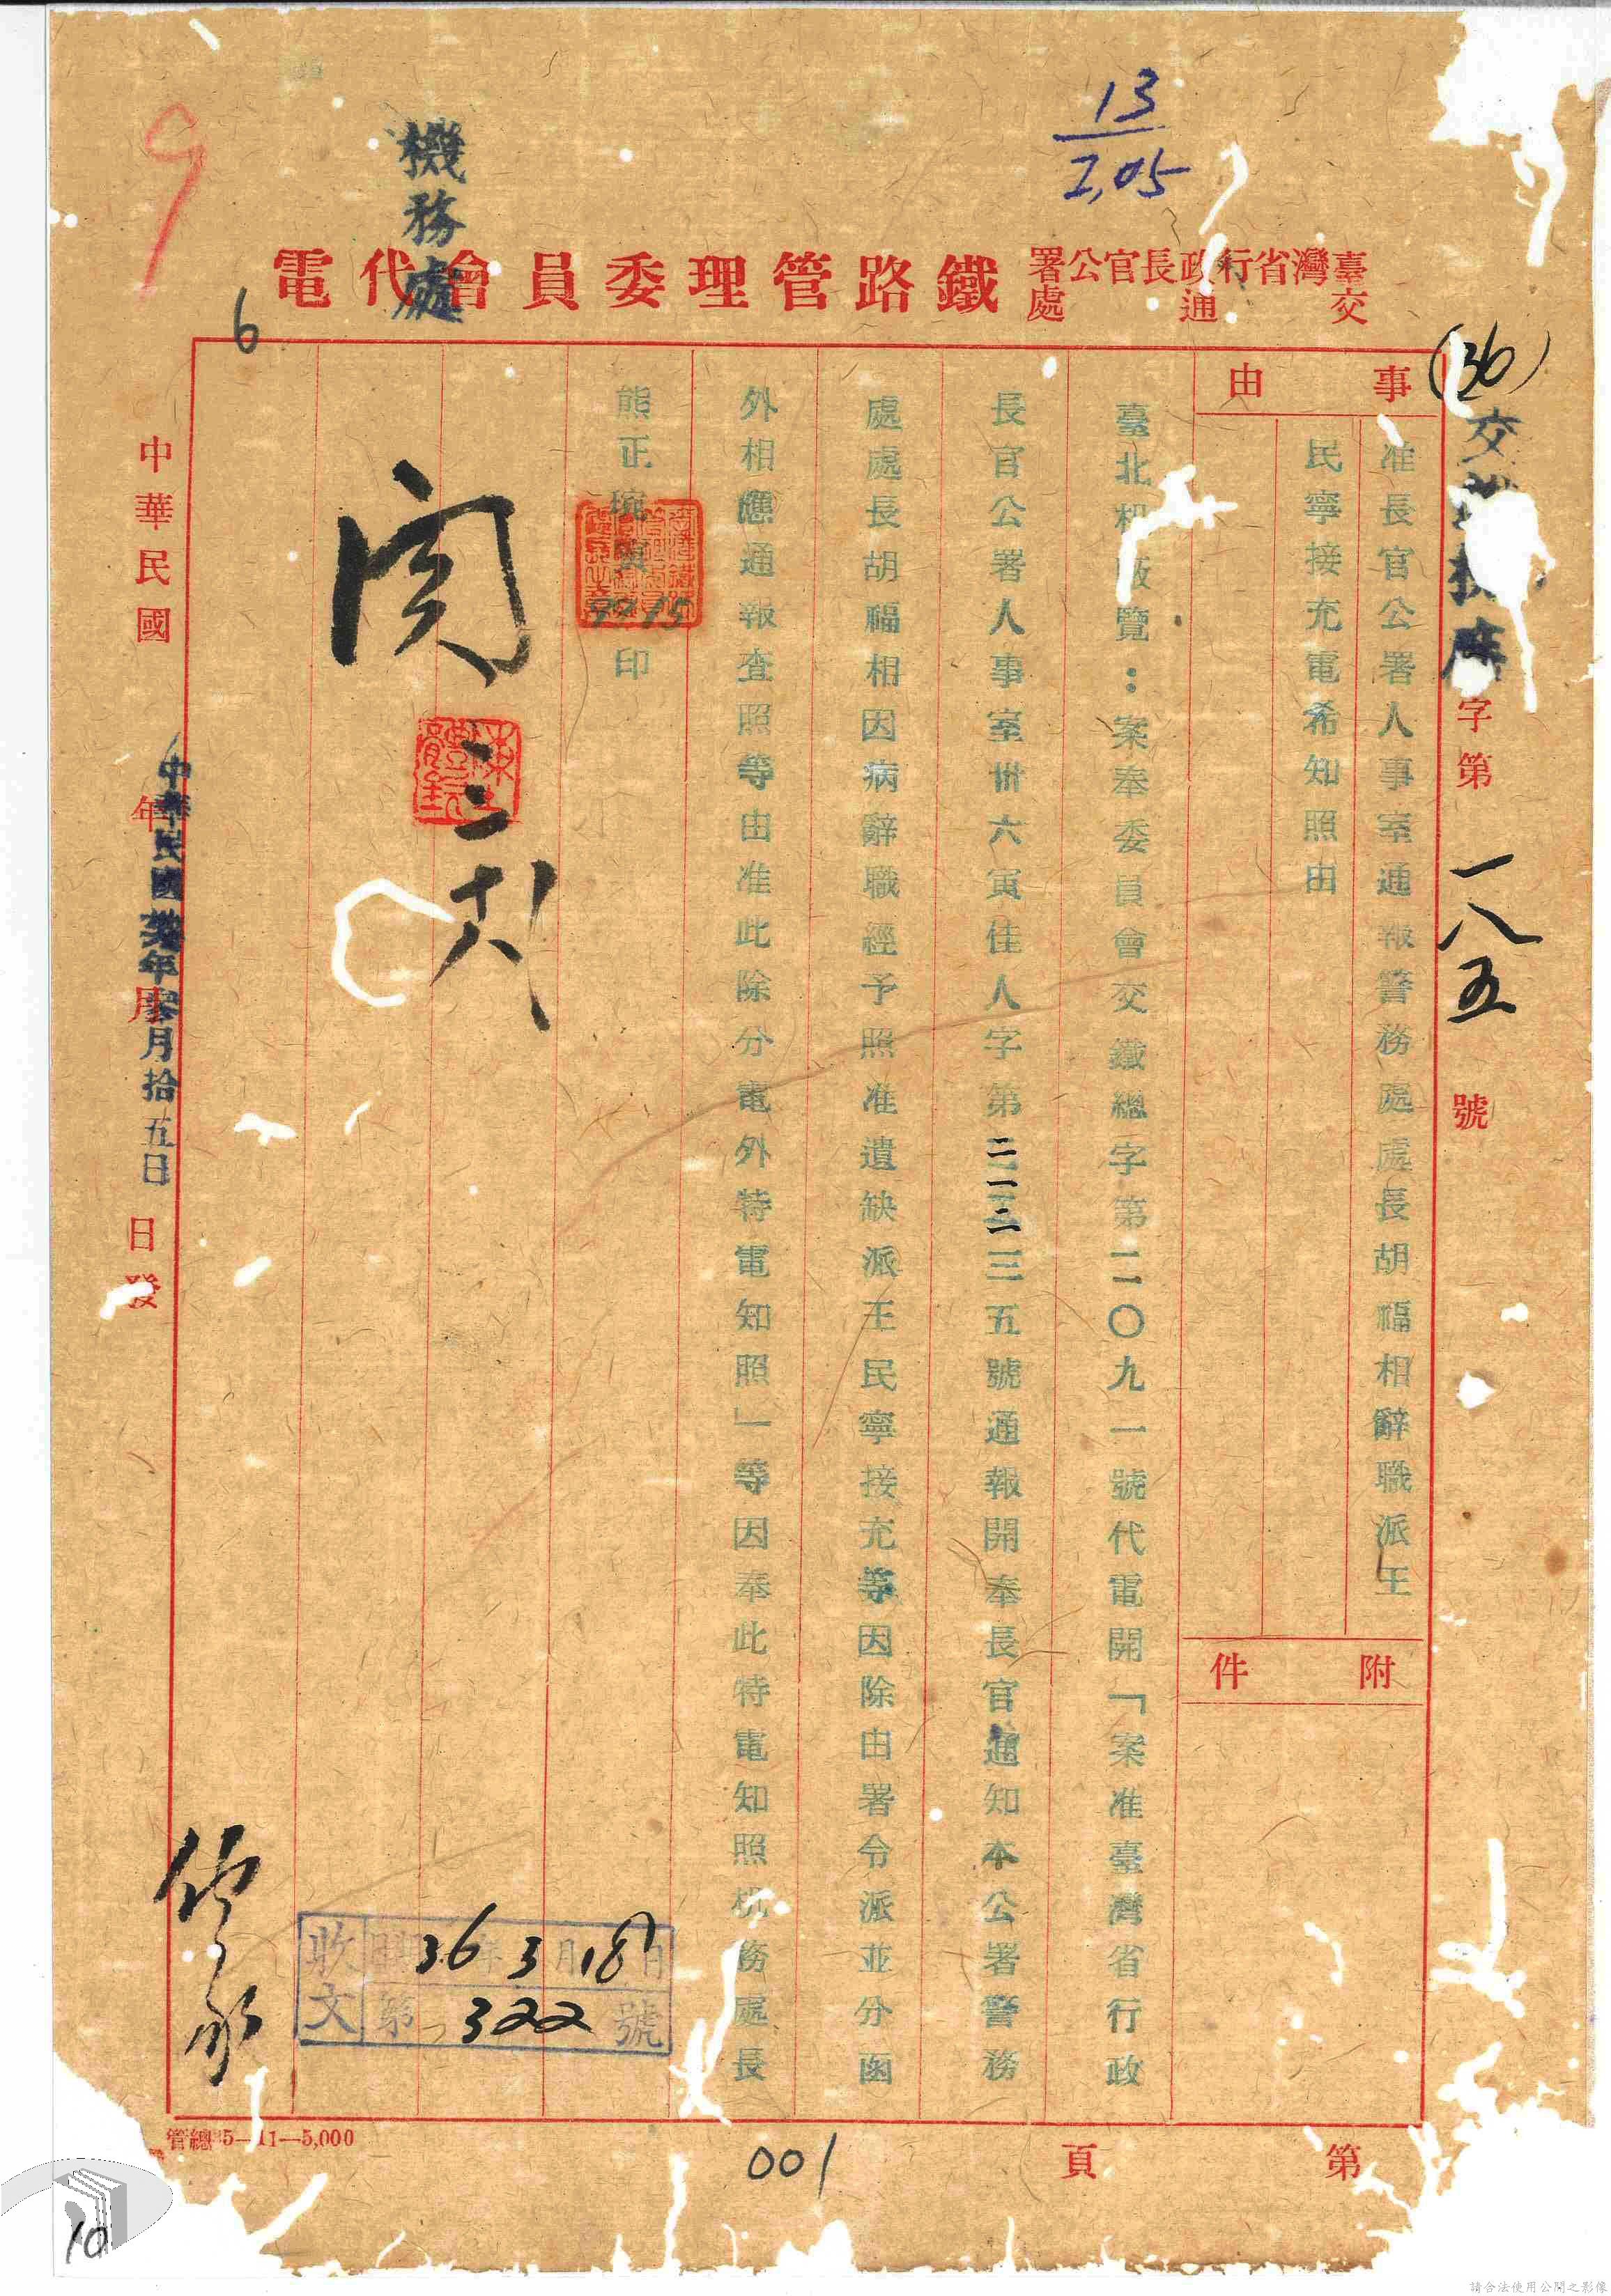 13
2,05
機務處
臺灣省行政長官公署
交通處
鐵路管理委員會代電
(36)
交
字第一八五號
事由
准長官公署人事室通報警務處處長胡福相辭職派王
民寧接充電希知照由
附件
臺北機廠覽：案奉委員會交鐵總字第二〇九一號代電開「案准臺灣省行政
長官公署人事室卅六寅佳人字第三五號通報開奉長官通知本公署警務
處處長胡福相因病辭職經予照准遺缺派王民寧接充等因除由署令派並分函
外相應通報查照等由准此除分電外特電知照」等因奉此特電知照机務處長
熊正琬寅
印
9915
閱
三
十八
收文
日期36年3月18日
第322號
中華民國年月日發
中華民國年參月拾五日
9
6
管總35—11—5,000
第頁
001
10
請合法使用公開之影像